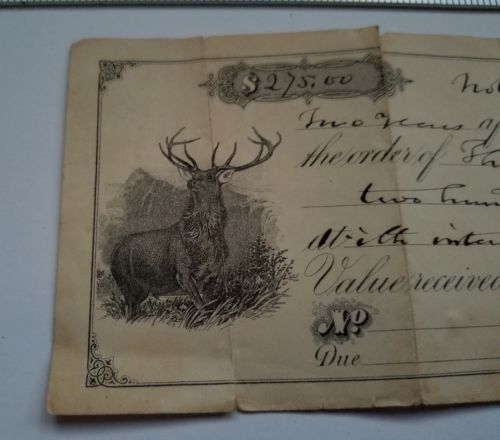 $275.00
Two Years
the order of
two hun
with inter
Value received
No
Due